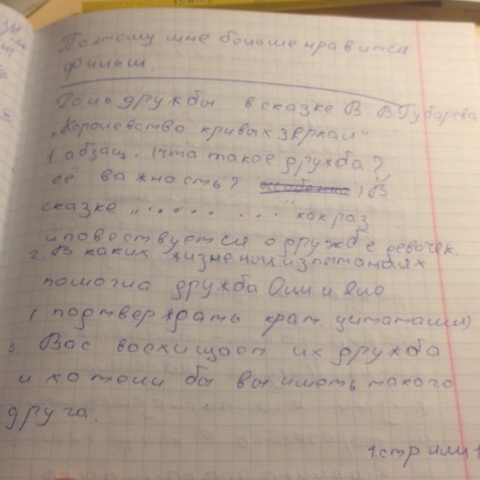 Поэтому мне больше нравится
фильм.
Роль дружбы в сказке В. В Губарева
„Королевство кривых зеркал"
1. абзац. что такое дружба?
её важность? В
сказке „....... ..." как раз
и повествуется о дружбе девочек.
2. В каких жизненых испытаниях
помогла дружба Оли и Яло
( подтверждать крат. цитатами)
3. Вас восхищает их дружба
и хотели бы вы иметь такого
друга.
1 стр или 1